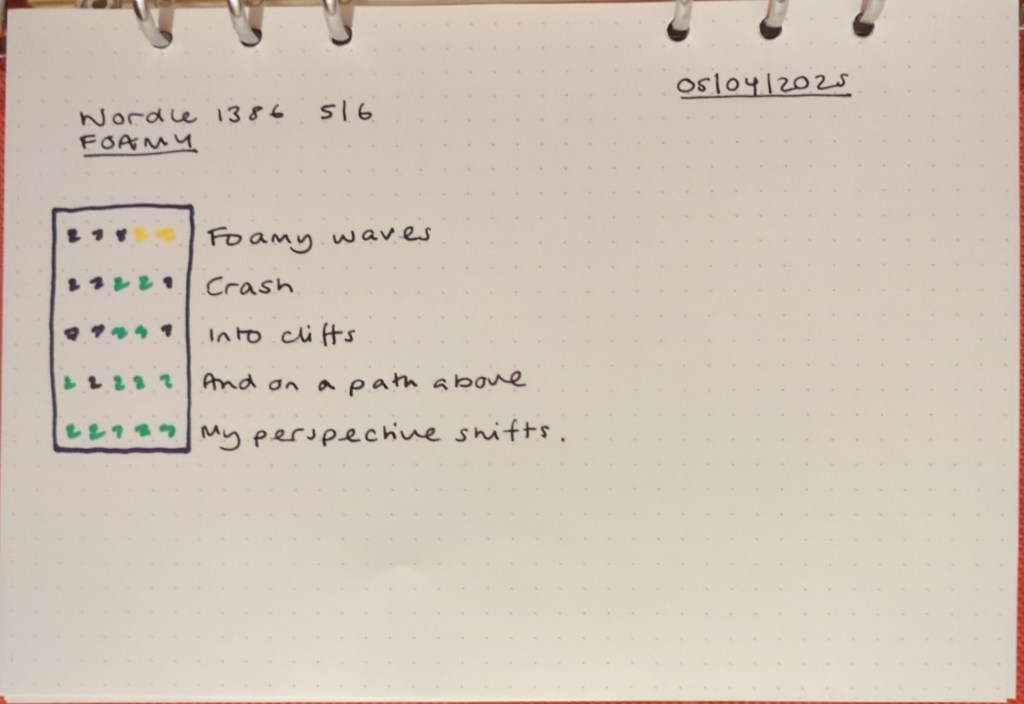 05/04/2025
Wordle 1386 5/6
FOAMY
Foamy waves
Crash
Into clifts
And on a path above
My perspective shifts.